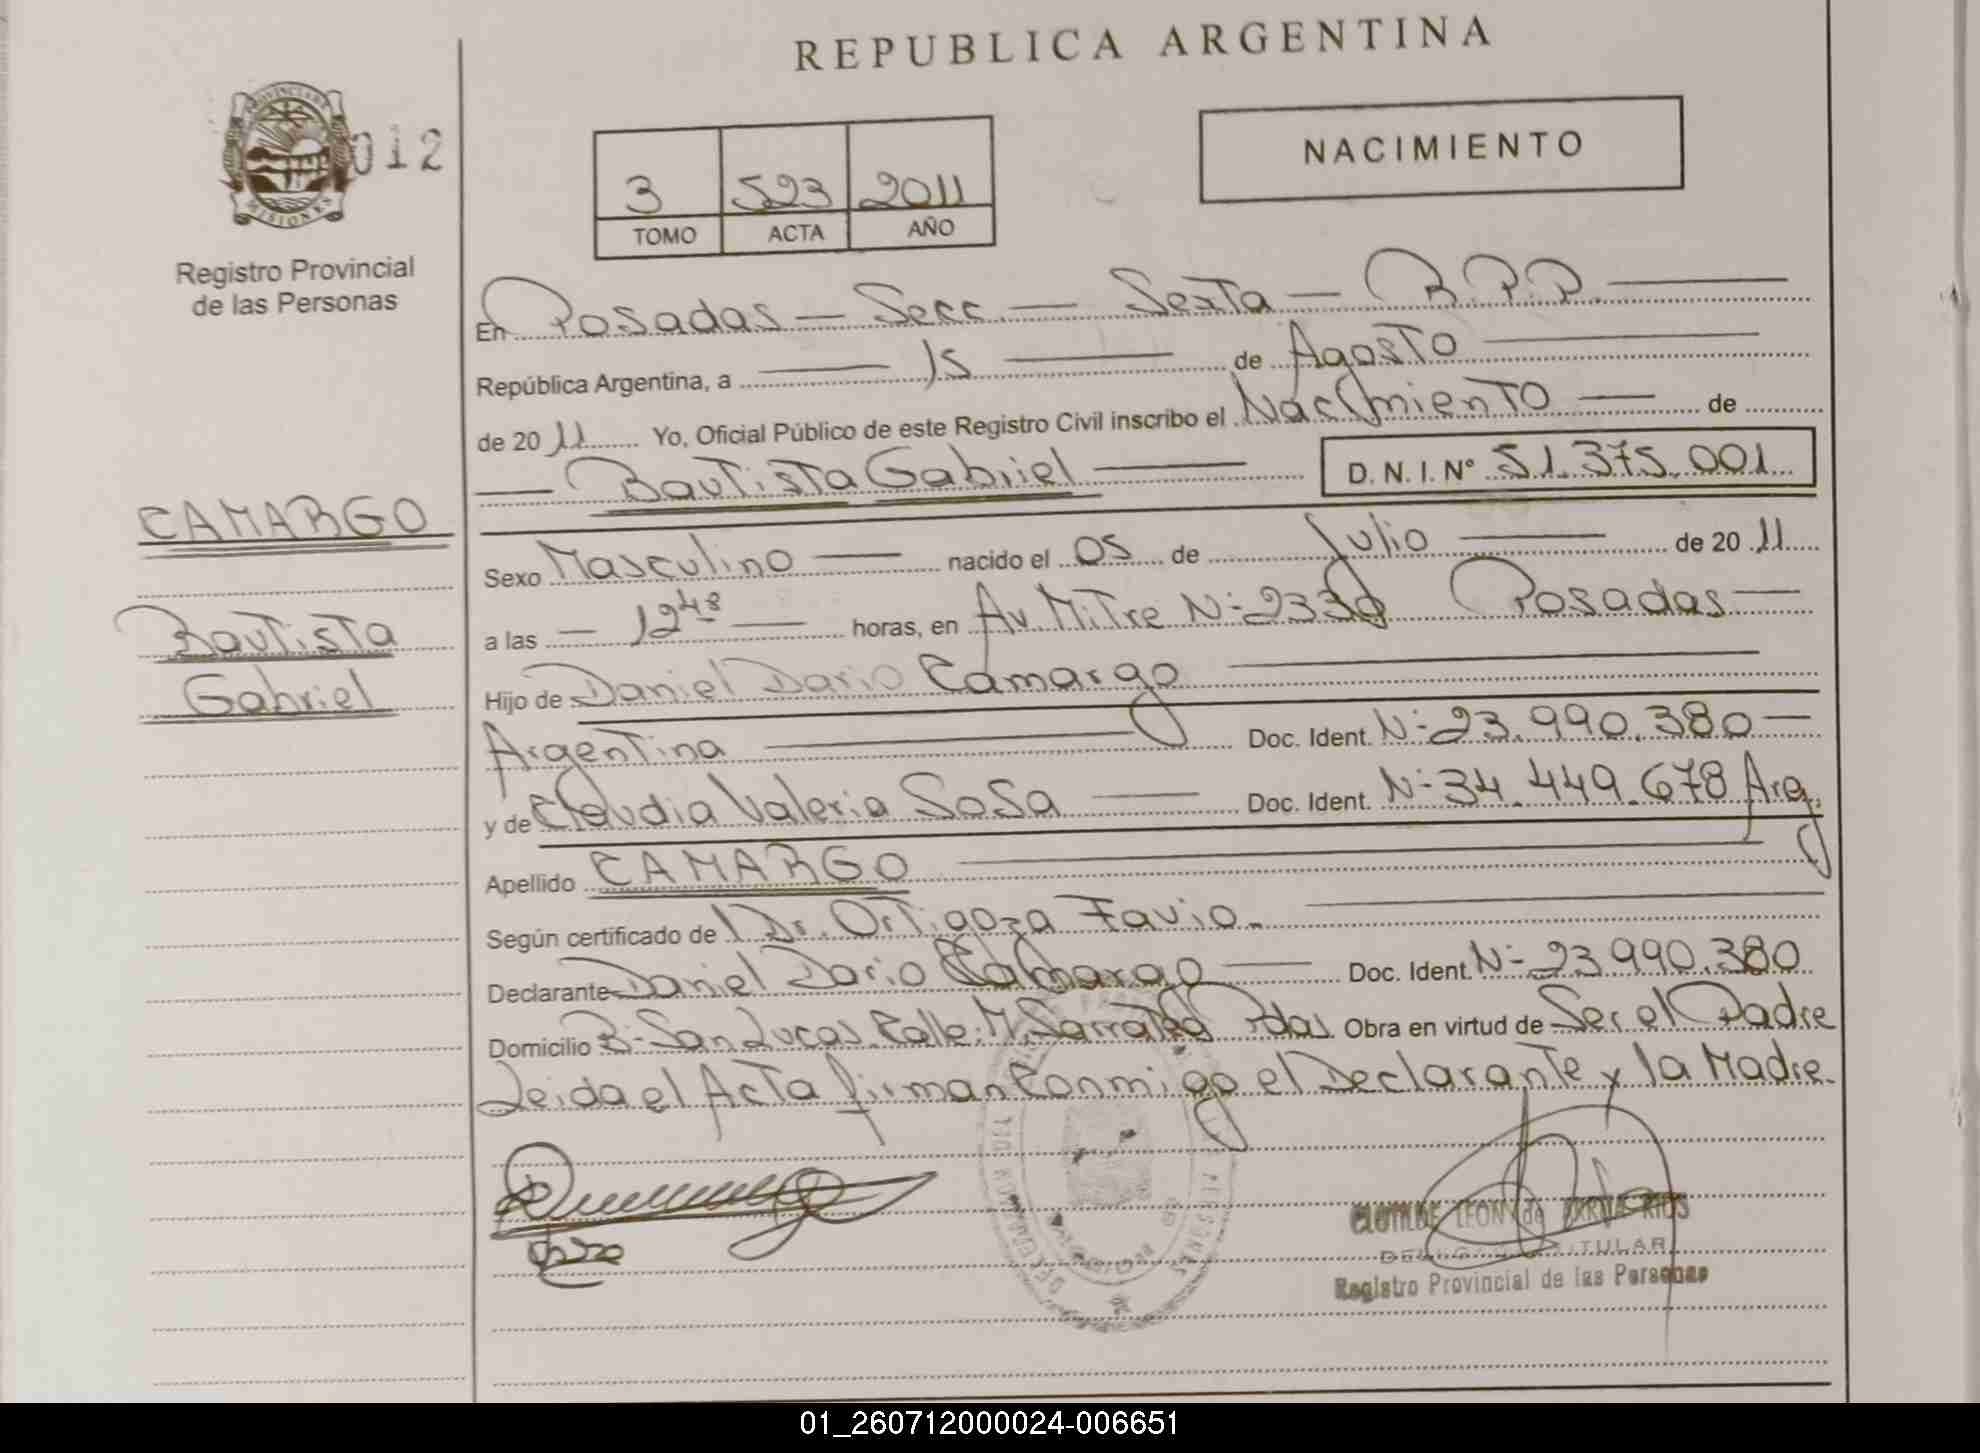 REPUBLICA ARGENTINA
PROVINCIA DE MISIONES
012
Registro Provincial
de las Personas
3 523 2011
TOMO ACTA AÑO
NACIMIENTO
En Posadas — Secc. — Sexta — R.P.P.
República Argentina, a 15 de Agosto
de 2011 Yo, Oficial Público de este Registro Civil inscribo el Nacimiento de
Bautista Gabriel D. N. I. N° 51.375.001
CAMARGO
Bautista
Gabriel
Sexo Masculino nacido el 05 de Julio de 2011
a las 12 48 horas, en Av. Mitre N° 2330 Posadas
Hijo de Daniel Dario Camargo
Argentina Doc. Ident. N° 23.990.380
y de Claudia Valeria Sosa Doc. Ident. N° 34.449.678 Arg.
Apellido CAMARGO
Según certificado de Dr. Ortigoza Favio.
Declarante Daniel Dario Camargo Doc. Ident. N° 23.990.380
Domicilio B° San Lucas. Calle. M. Sarratea Pdas. Obra en virtud de Ser el Padre
Leida el Acta firman Conmigo el Declarante y la Madre.
CLOTILDE LEON de
TITULAR
Registro Provincial de las Personas
01_260712000024-006651